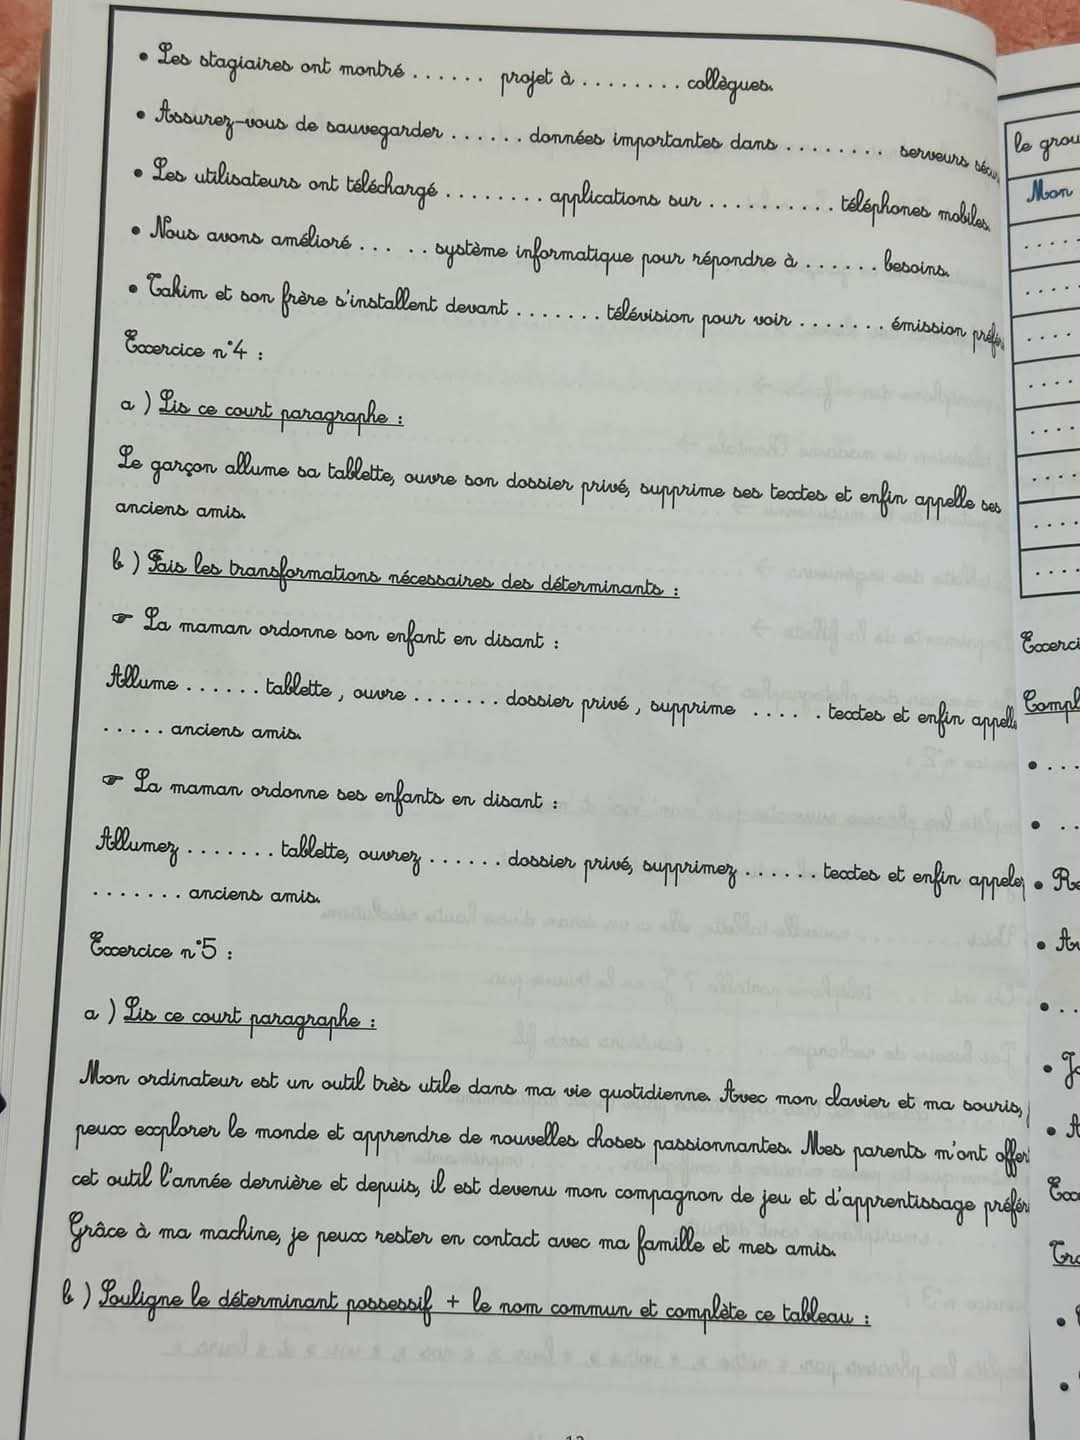 • Les stagiaires ont montré ...... projet à ........ collègues.
• Assurez-vous de sauvegarder ...... données importantes dans ........ serveurs
• Les utilisateurs ont téléchargé ........ applications sur .......... téléphones mobiles.
• Nous avons amélioré ... .. système informatique pour répondre à ...... besoins.
• Takim et son frère s'installent devant ....... télévision pour voir ....... émission
Exercice n°4 :
a ) Lis ce court paragraphe :
Le garçon allume sa tablette, ouvre son dossier privé, supprime ses textes et enfin appelle ses
anciens amis.
b ) Fais les transformations nécessaires des déterminants :
☞ La maman ordonne son enfant en disant :
Allume ...... tablette , ouvre ....... dossier privé , supprime .... . textes et enfin appelle
..... anciens amis.
☞ La maman ordonne ses enfants en disant :
Allumez ....... tablette, ouvrez ...... dossier privé, supprimez ...... textes et enfin appelez
....... anciens amis.
Exercice n°5 :
a ) Lis ce court paragraphe :
Mon ordinateur est un outil très utile dans ma vie quotidienne. Avec mon clavier et ma souris,
peux explorer le monde et apprendre de nouvelles choses passionnantes. Mes parents m'ont
cet outil l'année dernière et depuis, il est devenu mon compagnon de jeu et d'apprentissage
Grâce à ma machine, je peux rester en contact avec ma famille et mes amis.
b ) Souligne le déterminant possessif + le nom commun et complète ce tableau :
le
Mon